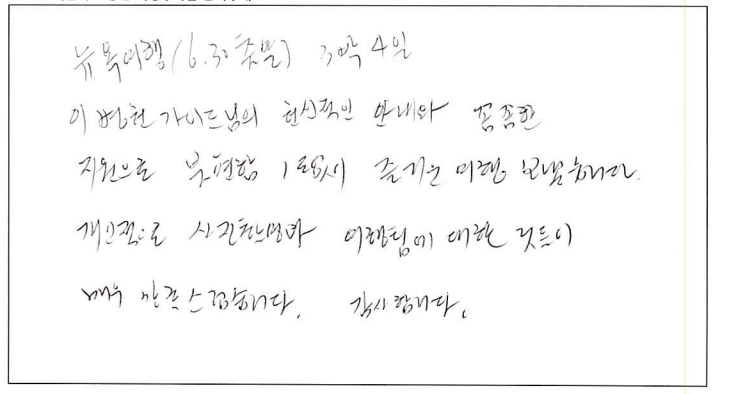 뉴욕여행(6.30출발) 3박4일
이병헌 가이드님의 헌신적인 안내와 꼼꼼한
지원으로 불편함 1도없이 즐거운 여행 보냈습니다.
개인적으로 사진촬영과 여행팀에 대한 것들이
매우 만족스럽습니다. 감사합니다.